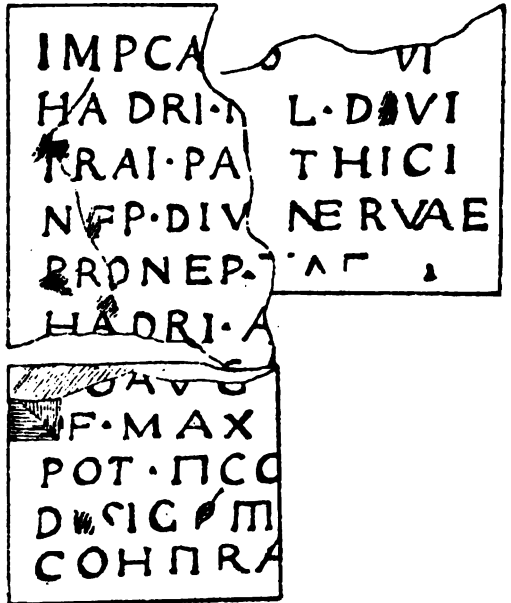 IMPCA VI
HADRI· L·DIVI
TRAI·PA THICI
NEP·DIV NERVAE
PRONEP·
HADRI·A
AVG
F·MAX
POT·IICO
D SIG III
COHIIRA